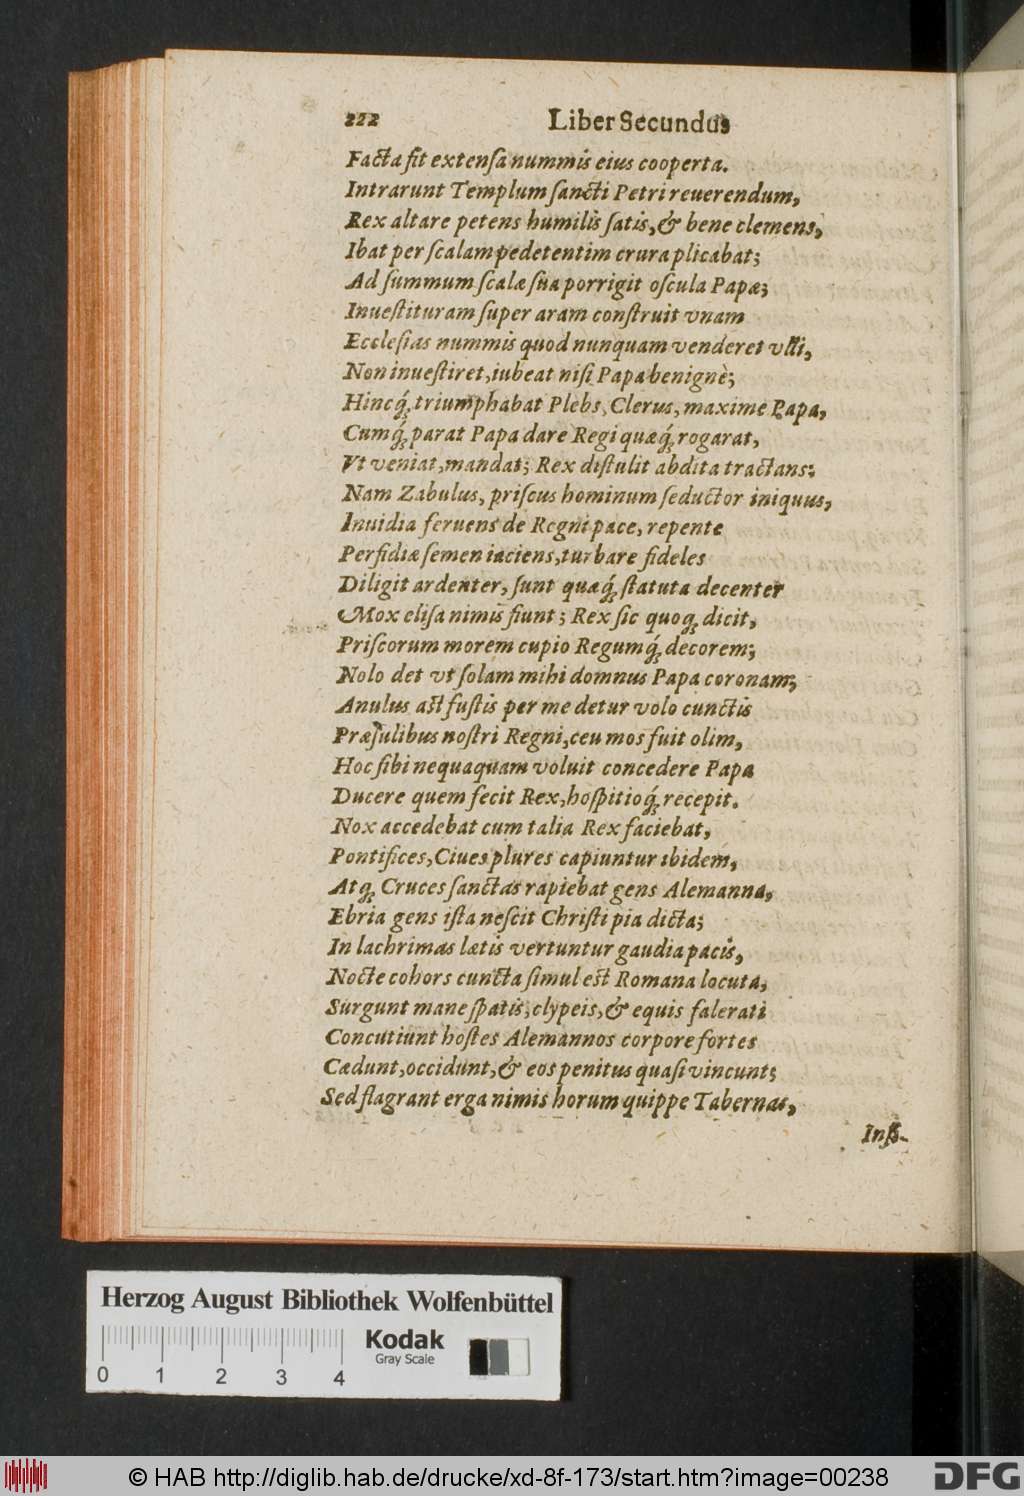 272 Liber Secundus
Facta ſit extenſa nummis eius cooperta.
Intrarunt Templum ſancti Petri reuerendum,
Rex altare petens humilis ſatis, & bene clemens,
Ibat per ſcalam pedetentim crura plicabat;
Ad ſummum ſcalæ ſua porrigit oſcula Papæ;
Inueſtituram ſuper aram conſtruit vnam
Eccleſias nummis quod nunquam venderet vlli,
Non inueſtiret, iubeat niſi Papa benignè;
Hincq́; triumphabat Plebs, Clerus, maxime Papa,
Cumq́; parat Papa dare Regi quæq́; rogarat,
Vt veniat, mandat; Rex diſtulit abdita tractans:
Nam Zabulus, priſcus hominum ſeductor iniquus,
Inuidia feruens de Regni pace, repente
Perfidiæ ſemen iaciens, turbare fideles
Diligit ardenter, ſunt quæq́; ſtatuta decenter
Mox eliſa nimis fiunt; Rex ſic quoq; dicit,
Priſcorum morem cupio Regumq́; decorem;
Nolo det vt ſolam mihi domnus Papa coronam;
Anulus aſt fuſtis per me detur volo cunctis
Præſulibus noſtri Regni, ceu mos fuit olim,
Hoc ſibi nequaquam voluit concedere Papa
Ducere quem fecit Rex, hoſpitioq́; recepit.
Nox accedebat cum talia Rex faciebat,
Pontifices, Ciues plures capiuntur ibidem,
Atq; Cruces ſanctas rapiebat gens Alemanna,
Ebria gens iſta neſcit Chriſti pia dicta;
In lachrimas lætis vertuntur gaudia pacis,
Nocte cohors cuncta ſimul eſt Romana locuta,
Surgunt mane ſpatis, clypeis, & equis falerati
Concutiunt hoſtes Alemannos corpore fortes
Cædunt, occidunt, & eos penitus quaſi vincunt;
Sed flagrant erga nimis horum quippe Tabernas,
Inſß-
Herzog August Bibliothek Wolfenbüttel
Kodak
Gray Scale
0 1 2 3 4
© HAB http://diglib.hab.de/drucke/xd-8f-173/start.htm?image=00238
DFG